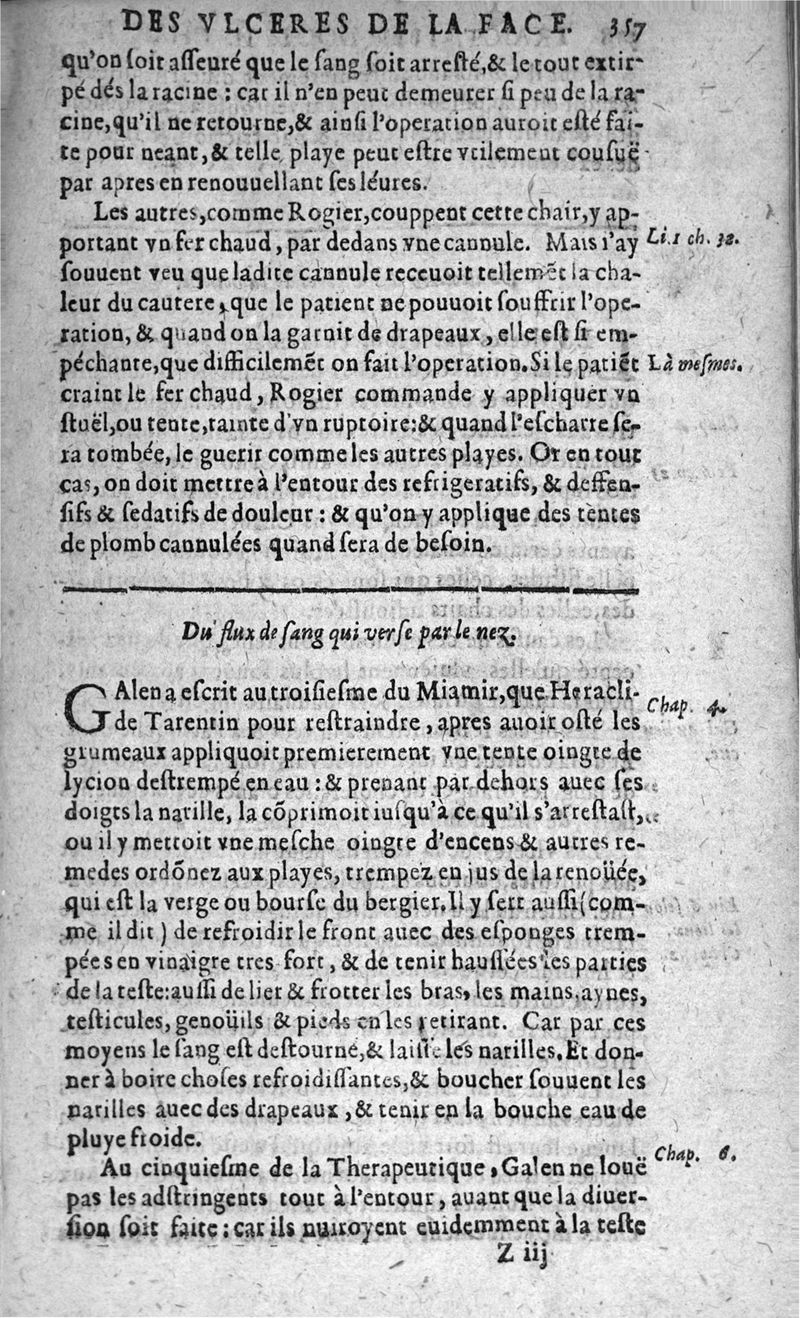 DES VLCERES DE LA FACE. 357
qu'on ſoit aſſeuré que le ſang ſoit arreſté,& le tout extir-
pé dés la racine : car il n'en peut demeurer ſi peu de la ra-
cine,qu'il ne retourne,& ainſi l'operation auroit eſté fai-
te pour neant,& telle playe peut eſtre vtilement couſuë
par apres en renouuellant ſes léures.
Les autres,comme Rogier,couppent cette chair,y ap-
portant vn fer chaud, par dedans vne cannule. Mais i'ay
Li.1 ch. 32.
ſouuent veu que ladite cannule receuoit tellemēt la cha-
leur du cautere, que le patient ne pouuoit ſouffrir l'ope-
ration, & quand on la garnit de drapeaux, elle eſt ſi em-
péchante,que difficilemēt on fait l'operation.Si le patiēt
Là meſmes.
craint le fer chaud, Rogier commande y appliquer vn
ſtuël,ou tente,tainte d'vn ruptoire:& quand l'eſcharre ſe-
ra tombée, le guerir comme les autres playes. Or en tout
cas, on doit mettre à l'entour des refrigeratifs, & deffen-
ſifs & ſedatifs de douleur : & qu'on y applique des tentes
de plomb cannulées quand ſera de beſoin.
Du flux de ſang qui verſe par le nez.
GAlen a eſcrit au troiſieſme du Miamir,que Heracli-
Chap. 4.
de Tarentin pour reſtraindre, apres auoir oſté les
grumeaux appliquoit premierement vne tente oingte de
lycion deſtrempé en eau : & prenant par dehors auec ſes
doigts la narille, la cōprimoit iuſqu'à ce qu'il s'arreſtaſt,
ou il y mettoit vne meſche oingte d'encens & autres re-
medes ordōnez aux playes, trempez en jus de la renoüée,
qui eſt la verge ou bourſe du bergier. Il y ſert auſſi (com-
me il dit ) de refroidir le front auec des eſponges trem-
pées en vinaigre tres fort, & de tenir hauſſées les parties
de la teſte: auſſi de lier & frotter les bras, les mains, aynes,
teſticules, genoüils & pieds en les retirant. Car par ces
moyens le ſang eſt deſtourné,& laiſſe les narilles. Et don-
ner à boire choſes refroidiſſantes,& boucher ſouuent les
narilles auec des drapeaux, & tenir en la bouche eau de
pluye froide.
Au cinquieſme de la Therapeutique, Galen ne louë
Chap. 6.
pas les adſtringents tout à l'entour, auant que la diuer-
ſion ſoit faite : car ils nuiroyent euidemment à la teſte
Z iij